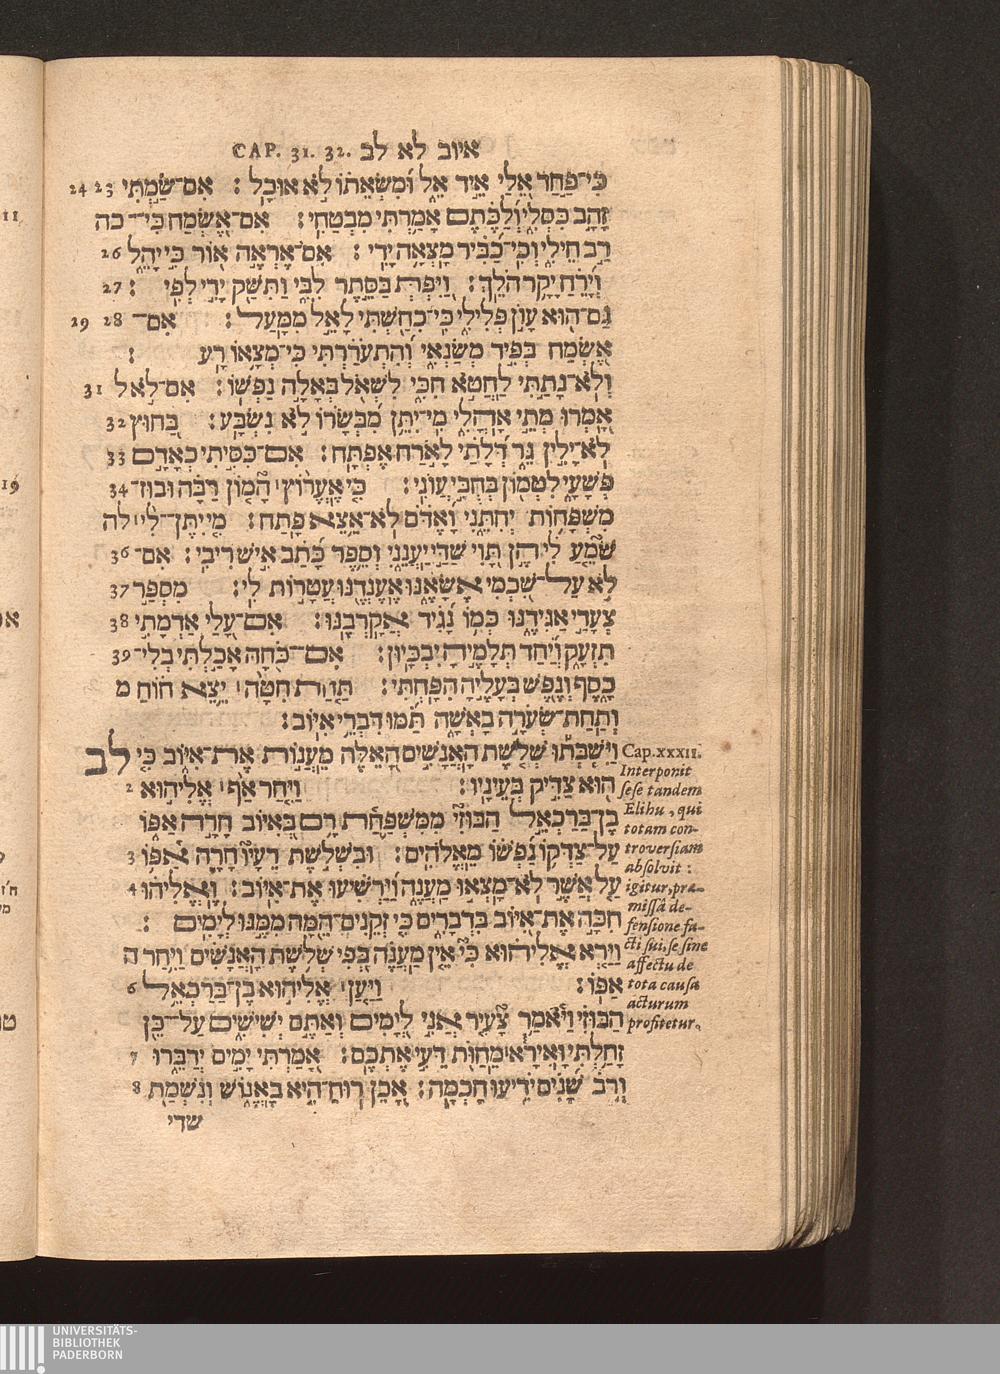 CAP. 31. 32. איוב לא לב
כִּי־פַחַד אֵלַי אֵיד אֵל וּמִשְּׂאֵתוֹ לֹא אוּכָל : אִם־שַׂמְתִּי 23 24
זָהָב כִּסְלִי וְלַכֶּתֶם אָמַרְתִּי מִבְטַחִי : אִם־אֶשְׂמַח כִּי־ כה
רַב חֵילִי וְכִי־כַבִּיר מָצְאָה יָדִי : אִם־אֶרְאֶה אוֹר כִּי יָהֵל 26
וְיָרֵחַ יָקָר הֹלֵךְ : וַיִּפְתְּ בַּסֵּתֶר לִבִּי וַתִּשַּׁק יָדִי לְפִי : 27
גַּם־הוּא עָוֹן פְּלִילִי כִּי־כִחַשְׁתִּי לָאֵל מִמָּעַל : אִם־ 28 29
אֶשְׂמַח בְּפִיד מְשַׂנְאִי וְהִתְעֹרַרְתִּי כִּי־מְצָאוֹ רָע :
וְלֹא־נָתַתִּי לַחֲטֹא חִכִּי לִשְׁאֹל בְּאָלָה נַפְשׁוֹ : אִם־לֹא ל 31
אָמְרוּ מְתֵי אָהֳלִי מִי־יִתֵּן מִבְּשָׂרוֹ לֹא נִשְׂבָּע : בַּחוּץ 32
לֹא־יָלִין גֵּר דְּלָתַי לָאֹרַח אֶפְתָּח : אִם־כִּסִּיתִי כְאָדָם 33
פְּשָׁעָי לִטְמוֹן בְּחֻבִּי עֲוֹנִי : כִּי אֶעֱרוֹץ הָמוֹן רַבָּה וּבוּז־ 34
מִשְׁפָּחוֹת יְחִתֵּנִי וָאֶדֹּם לֹא־אֵצֵא פָתַח : מִי יִתֶּן־לִי לה
שֹׁמֵעַ לִי הֶן תָּוִי שַׁדַּי יַעֲנֵנִי וְסֵפֶר כָּתַב אִישׁ רִיבִי : אִם־ 36
לֹא עַל־שִׁכְמִי אֶשָּׂאֶנּוּ אֶעֶנְדֶנּוּ עֲטָרוֹת לִי : מִסְפַּר 37
צְעָדַי אַגִּידֶנּוּ כְּמוֹ נָגִיד אֲקָרְבֶנּוּ : אִם־עָלַי אַדְמָתִי 38
תִזְעָק וְיַחַד תְּלָמֶיהָ יִבְכָּיוּן : אִם־כֹּחָהּ אָכַלְתִּי בְלִי־ 39
כָסֶף וְנֶפֶשׁ בְּעָלֶיהָ הִפָּחְתִּי : תַּחַת חִטָּה יֵצֵא חוֹחַ מ
וְתַחַת־שְׂעֹרָה בָאְשָׁה תַּמּוּ דִּבְרֵי אִיּוֹב :
וַיִּשְׁבְּתוּ שְׁלֹשֶׁת הָאֲנָשִׁים הָאֵלֶּה מֵעֲנוֹת אֶת־אִיּוֹב כִּי לב
הוּא צַדִּיק בְּעֵינָיו : וַיִּחַר אַף אֱלִיהוּא 2
בֶן־בַּרַכְאֵל הַבּוּזִי מִמִּשְׁפַּחַת רָם בְּאִיּוֹב חָרָה אַפּוֹ
עַל־צַדְּקוֹ נַפְשׁוֹ מֵאֱלֹהִים : וּבִשְׁלֹשֶׁת רֵעָיו חָרָה אַפּוֹ 3
עַל אֲשֶׁר לֹא־מָצְאוּ מַעֲנֶה וַיַּרְשִׁיעוּ אֶת־אִיּוֹב : וֶאֱלִיהוּ 4
חִכָּה אֶת־אִיּוֹב בִּדְבָרִים כִּי זְקֵנִים־הֵמָּה מִמֶּנּוּ לְיָמִים :
וַיַּרְא אֱלִיהוּא כִּי אֵין מַעֲנֶה בְּפִי שְׁלֹשֶׁת הָאֲנָשִׁים וַיִּחַר ה
אַפּוֹ : וַיַּעַן אֱלִיהוּא בֶן־בַּרַכְאֵל 6
הַבּוּזִי וַיֹּאמַר צָעִיר אֲנִי לְיָמִים וְאַתֶּם יְשִׁישִׁים עַל־כֵּן
זָחַלְתִּי וָאִירָא מֵחַוֹּת דֵּעִי אֶתְכֶם : אָמַרְתִּי יָמִים יְדַבֵּרוּ 7
וְרֹב שָׁנִים יֹדִיעוּ חָכְמָה : אָכֵן רוּחַ־הִיא בֶאֱנוֹשׁ וְנִשְׁמַת 8
שדי
Cap. XXXII.
Interponit
sese tandem
Elihu, qui
totam con-
troversiam
absolvit :
igitur, præ-
missâ de-
fensione fa-
cti sui, se sine
affectu de
tota causa
acturum
profitetur.
11
19
UNIVERSITÄTS-
BIBLIOTHEK
PADERBORN